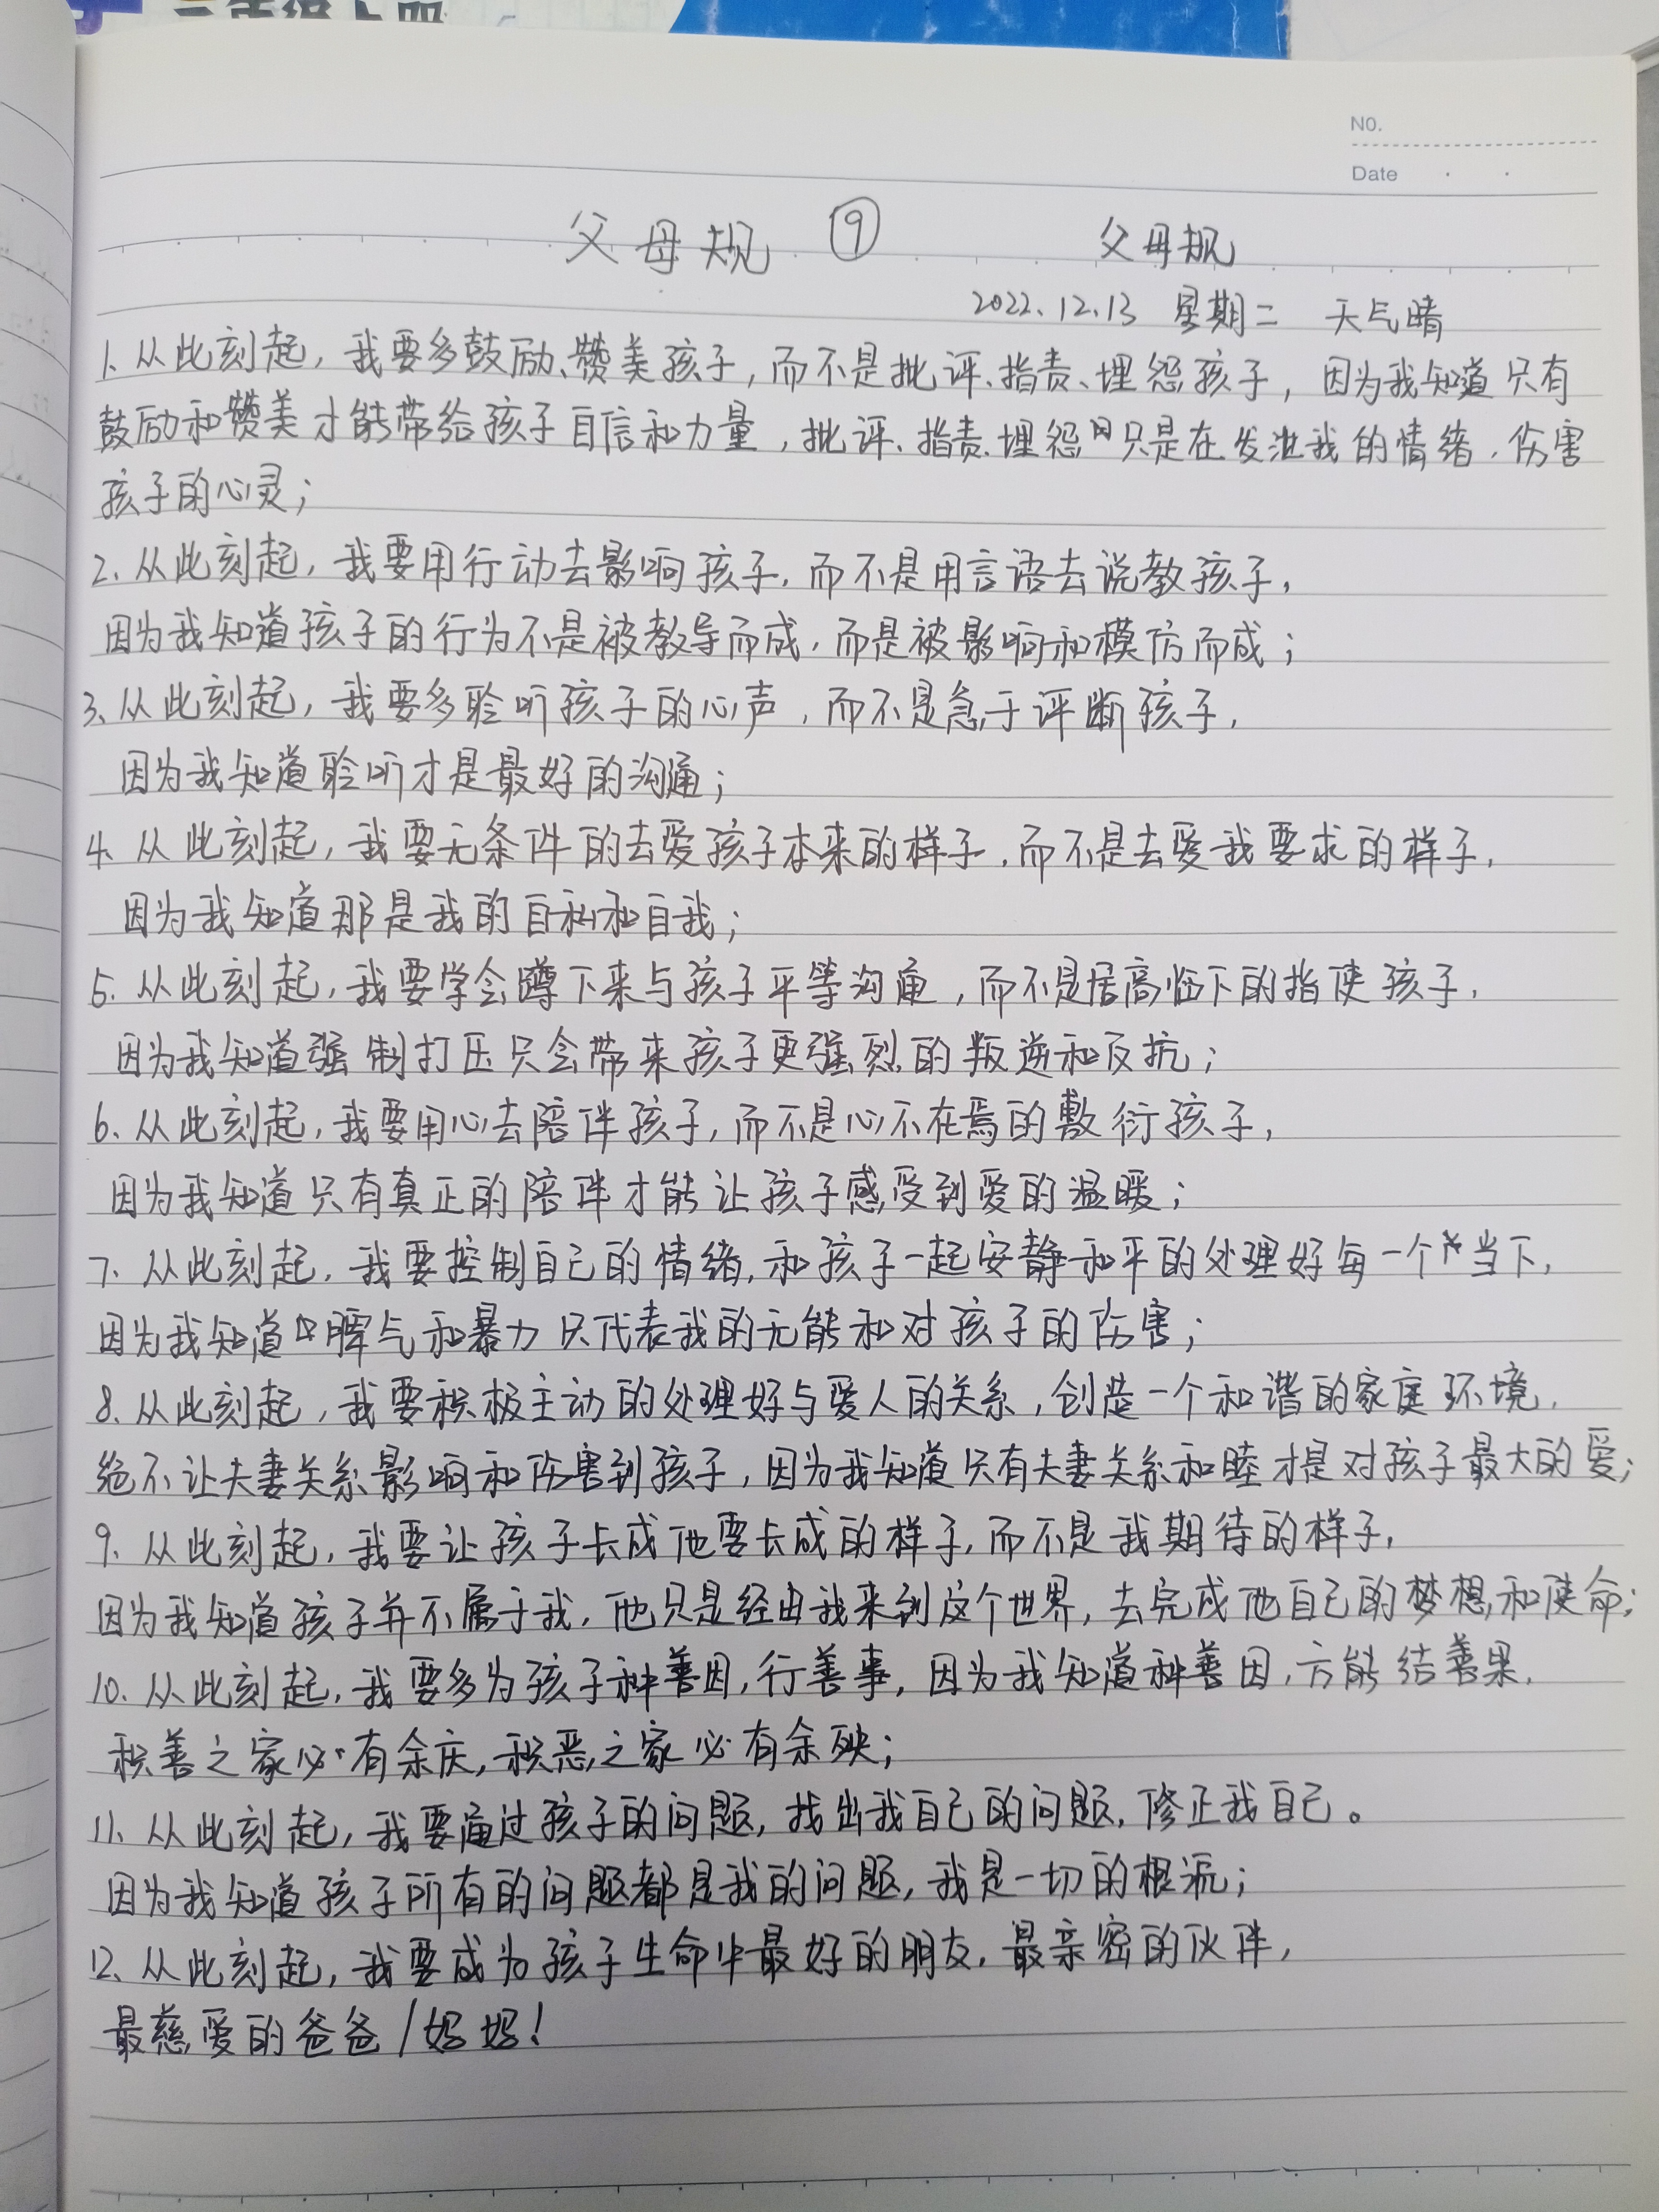 NO.
Date
父母规 ⑨ 父母规
2022.12.13 星期二 天气晴
1. 从此刻起，我要多鼓励、赞美孩子，而不是批评、指责、埋怨孩子，因为我知道只有
鼓励和赞美才能带给孩子自信和力量，批评、指责、埋怨只是在发泄我的情绪，伤害
孩子的心灵；
2. 从此刻起，我要用行动去影响孩子，而不是用言语去说教孩子，
因为我知道孩子的行为不是被教导而成，而是被影响和模仿而成；
3. 从此刻起，我要多聆听孩子的心声，而不是急于评断孩子，
因为我知道聆听才是最好的沟通；
4. 从此刻起，我要无条件的去爱孩子本来的样子，而不是去爱我要求的样子，
因为我知道那是我的自私和自我；
5. 从此刻起，我要学会蹲下来与孩子平等沟通，而不是居高临下的指使孩子，
因为我知道强制打压只会带来孩子更强烈的叛逆和反抗；
6. 从此刻起，我要用心去陪伴孩子，而不是心不在焉的敷衍孩子，
因为我知道只有真正的陪伴才能让孩子感受到爱的温暖；
7. 从此刻起，我要控制自己的情绪，和孩子一起安静和平的处理好每一个当下，
因为我知道脾气和暴力只代表我的无能和对孩子的伤害；
8. 从此刻起，我要积极主动的处理好与爱人的关系，创造一个和谐的家庭环境，
绝不让夫妻关系影响和伤害到孩子，因为我知道只有夫妻关系和睦才是对孩子最大的爱；
9. 从此刻起，我要让孩子长成他要长成的样子，而不是我期待的样子，
因为我知道孩子并不属于我，他只是经由我来到这个世界，去完成他自己的梦想和使命；
10. 从此刻起，我要多为孩子种善因，行善事，因为我知道种善因，方能结善果，
积善之家必有余庆，积恶之家必有余殃；
11. 从此刻起，我要通过孩子的问题，找出我自己的问题，修正我自己。
因为我知道孩子所有的问题都是我的问题，我是一切的根源；
12. 从此刻起，我要成为孩子生命中最好的朋友，最亲密的伙伴，
最慈爱的爸爸/妈妈！